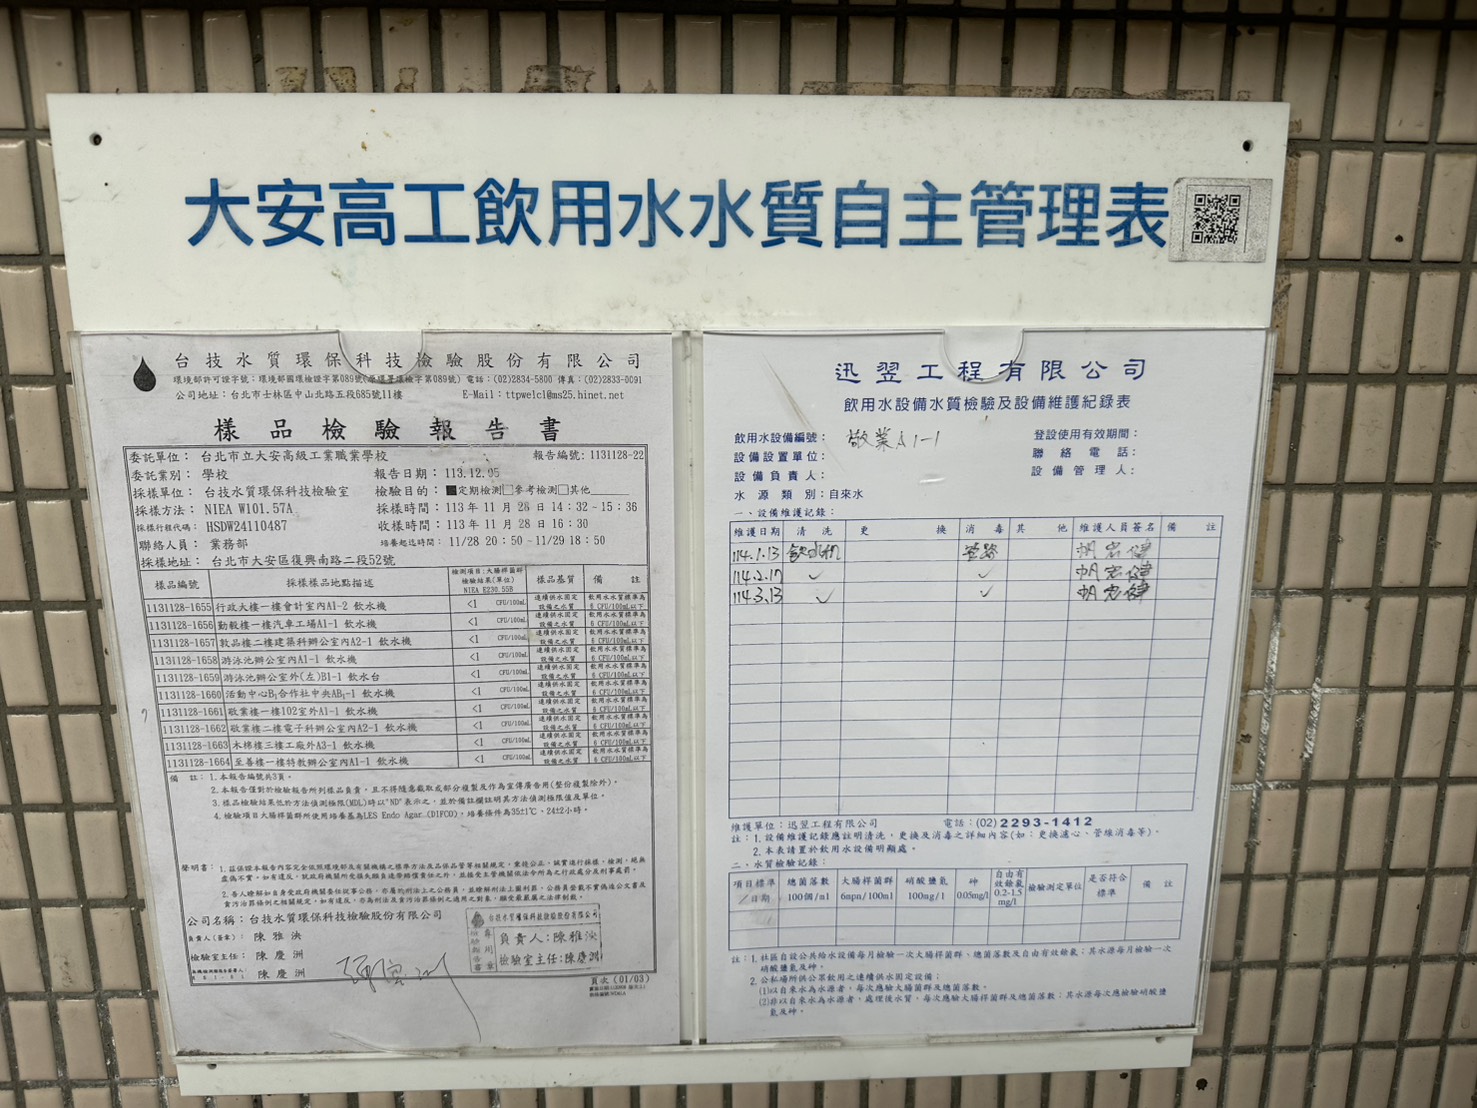 大安高工飲用水水質自主管理表
台技水質環保科技檢驗股份有限公司
環境部許可證字號：環境部國環檢證字第089號(原環署環檢字第089號) 電話：(02)2834-5800 傳真：(02)2833-0091
公司地址：台北市士林區中山北路五段685號11樓 E-Mail：ttpwelcl@ms25.hinet.net
樣品檢驗報告書
委託單位：台北市立大安高級工業職業學校 報告編號：1131128-22
委託業別：學校 報告日期：113.12.05
採樣單位：台技水質環保科技檢驗室 檢驗目的：■定期檢測□參考檢測□其他
採樣方法：NIEA W101.57A 採樣時間：113 年 11 月 28 日 14：32-15：36
採樣行程代碼：HSDW24110487 收樣時間：113 年 11 月 28 日 16：30
聯絡人員：業務部 培養起迄時間：11/28 20：50-11/29 18：50
採樣地址：台北市大安區復興南路二段52號
樣品編號 採樣樣品地點描述 檢測項目:大腸桿菌群 檢驗結果(單位) NIEA E230.55B 樣品基質 備註
1131128-1655 行政大樓一樓會計室內A1-2 飲水機 <1 CFU/100mL 連續供水固定設備之水質 飲用水水質標準為6 CFU/100mL以下
1131128-1656 勤毅樓一樓汽車工場A1-1 飲水機 <1 CFU/100mL 連續供水固定設備之水質 飲用水水質標準為6 CFU/100mL以下
1131128-1657 敦品樓二樓建築科辦公室內A2-1 飲水機 <1 CFU/100mL 連續供水固定設備之水質 飲用水水質標準為6 CFU/100mL以下
1131128-1658 游泳池辦公室內A1-1 飲水機 <1 CFU/100mL 連續供水固定設備之水質 飲用水水質標準為6 CFU/100mL以下
1131128-1659 游泳池辦公室外(左)B1-1 飲水台 <1 CFU/100mL 連續供水固定設備之水質 飲用水水質標準為6 CFU/100mL以下
1131128-1660 活動中心B1合作社中央AB1-1 飲水機 <1 CFU/100mL 連續供水固定設備之水質 飲用水水質標準為6 CFU/100mL以下
1131128-1661 敬業樓一樓102室外A1-1 飲水機 <1 CFU/100mL 連續供水固定設備之水質 飲用水水質標準為6 CFU/100mL以下
1131128-1662 敬業樓二樓電子科辦公室內A2-1 飲水機 <1 CFU/100mL 連續供水固定設備之水質 飲用水水質標準為6 CFU/100mL以下
1131128-1663 木棉樓三樓工廠外A3-1 飲水機 <1 CFU/100mL 連續供水固定設備之水質 飲用水水質標準為6 CFU/100mL以下
1131128-1664 至善樓一樓特教辦公室內A1-1 飲水機 <1 CFU/100mL 連續供水固定設備之水質 飲用水水質標準為6 CFU/100mL以下
備 註：1.本報告編號共3頁。
2.本報告僅對於檢驗報告所列樣品負責，且不得隨意截取或部分複製及作為宣傳廣告用(整份複製除外)。
3.樣品檢驗結果低於方法偵測極限(MDL)時以"ND"表示之，並於備註欄註明其方法偵測極限值及單位。
4.檢驗項目大腸桿菌群所使用培養基為LES Endo Agar (DIFCO)，培養條件為35±1℃、24±2小時。
聲明書：1.茲保證本報告內容完全依照環境部及有關機構之標準方法及品保品管等相關規定，秉持公正、誠實進行採樣、檢測，絕無
虛偽不實，如有違反，就政府機關所受損失願負連帶賠償責任之外，並接受主管機關依法令所為之行政處分及刑事處罰。
2.吾人瞭解如自身受政府機關委任從事公務，亦屬於刑法上之公務員，並瞭解刑法上圖利罪、公務員登載不實偽造公文書及
貪污治罪條例之相關規定，如有違反，亦為刑法及貪污治罪條例之適用之對象，願受最嚴厲之法律制裁。
公司名稱：台技水質環保科技檢驗股份有限公司
負責人(簽章)：陳雅泱
檢驗室主任：陳慶洲
陳慶洲
台技水質環保科技檢驗股份有限公司
檢驗報告專用章
負責人：陳雅泱
檢驗室主任：陳慶洲
頁次 (01/03)
迅翌工程有限公司
飲用水設備水質檢驗及設備維護紀錄表
飲用水設備編號：敬業A1-1 登設使用有效期間：
設備設置單位： 聯絡電話：
設備負責人： 設備管理人：
水源類別：自來水
一、設備維護記錄：
維護日期 清洗 更換 消毒 其他 維護人員簽名 備註
114.1.13 飲水机 管路
114.2.17 ✓ ✓
114.3.13 ✓ ✓
維護單位：迅翌工程有限公司 電話：(02)2293-1412
註：1.設備維護記錄應註明清洗，更換及消毒之詳細內容(如：更換濾心、管線消毒等)。
2.本表請置於飲用水設備明顯處。
二、水質檢驗記錄：
項目標準／日期 總菌落數 100個/ml 大腸桿菌群 6mpn/100ml 硝酸鹽氮 100mg/l 砷 0.05mg/l 自由有效餘氯 0.2-1.5 mg/l 檢驗測定單位 是否符合標準 備註
註：1.社區自設公共給水設備每月檢驗一次大腸桿菌群、總菌落數及自由有效餘氯；其水源每月檢驗一次
硝酸鹽氮及砷。
2.公私場所供公眾飲用之連續供水固定設備：
(1)以自來水為水源者，每次應驗大腸菌群及總菌落數。
(2)非以自來水為水源者，處理後水質，每次應驗大腸桿菌群及總菌落數；其水源每次應檢驗硝酸鹽
氮及砷。